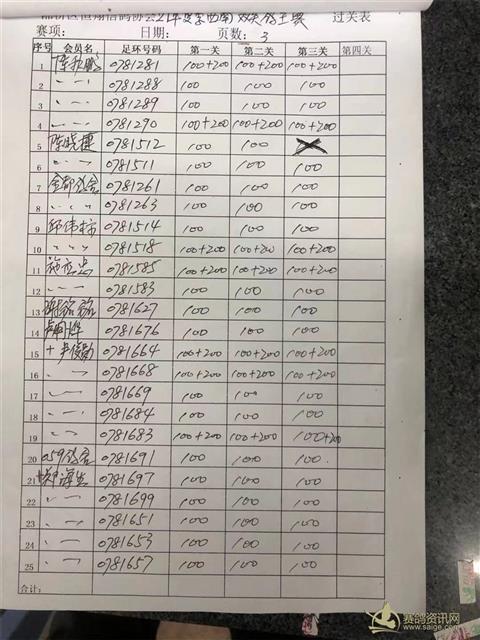 过关表
赛项： 日期： 页数：3
序号 会员名 足环号码 第一关 第二关 第三关 第四关
1 0781281 100+200 100+200 100+200
2 〃 〃 0781288 100 100 100
3 〃 〃 0781289 100 100 100
4 〃 〃 0781290 100+200 100+200 100+200
5 陈晓 0781512 100 100
6 〃 〃 0781511 100 100 100
7 金都鸽舍 0781261 100 100 100
8 〃 〃 0781263 100 100 100
9 邱伟 0781514 100 100 100
10 〃 〃 〃 0781518 100+200 100+200 100+200
11 0781585 100+200 100+200 100+200
12 〃 〃 0781583 100 100 100
13 0781627 100 100 100
14 0781676 100 100 100
15 0781664 100+200 100+200 100+200
16 〃 〃 0781668 100+200 100+200 100+200
17 〃 〃 0781669 100 100 100
18 〃 〃 0781684 100 100 100
19 〃 〃 0781683 100+200 100+200 100+200
20 059鸽舍 0781691 100 100 100
21 0781697 100 100 100
22 〃 〃 0781699 100 100 100
23 〃 〃 0781651 100 100 100
24 〃 〃 0781653 100 100 100
25 〃 〃 0781657 100 100 100
合计：
赛鸽资讯网
www.saige.com